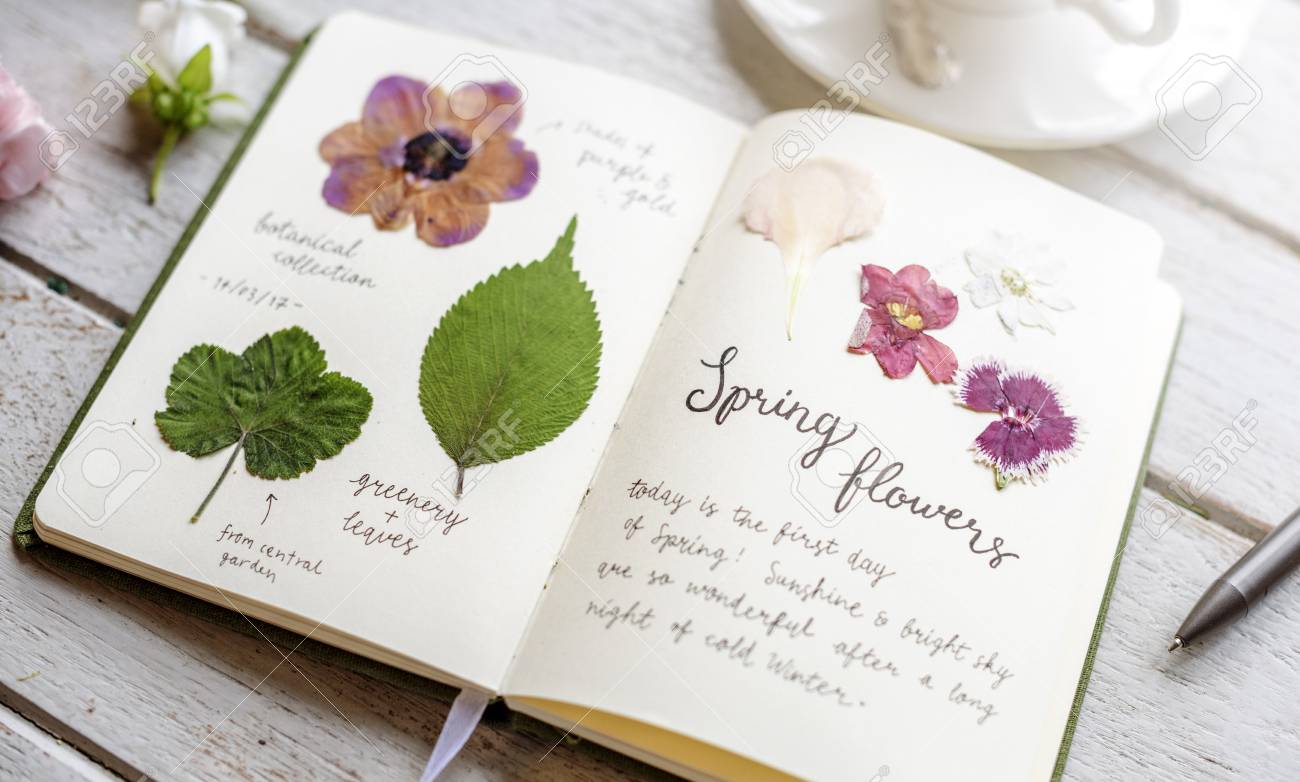 shades of
purple &
gold
botanical
collection
- 14/03/17 -
greenery
+
leaves
from central
garden
Spring
flowers
today is the first day
of Spring! Sunshine & bright sky
are so wonderful after a long
night of cold Winter.
123RF
123RF
123RF
123RF
123RF
123RF